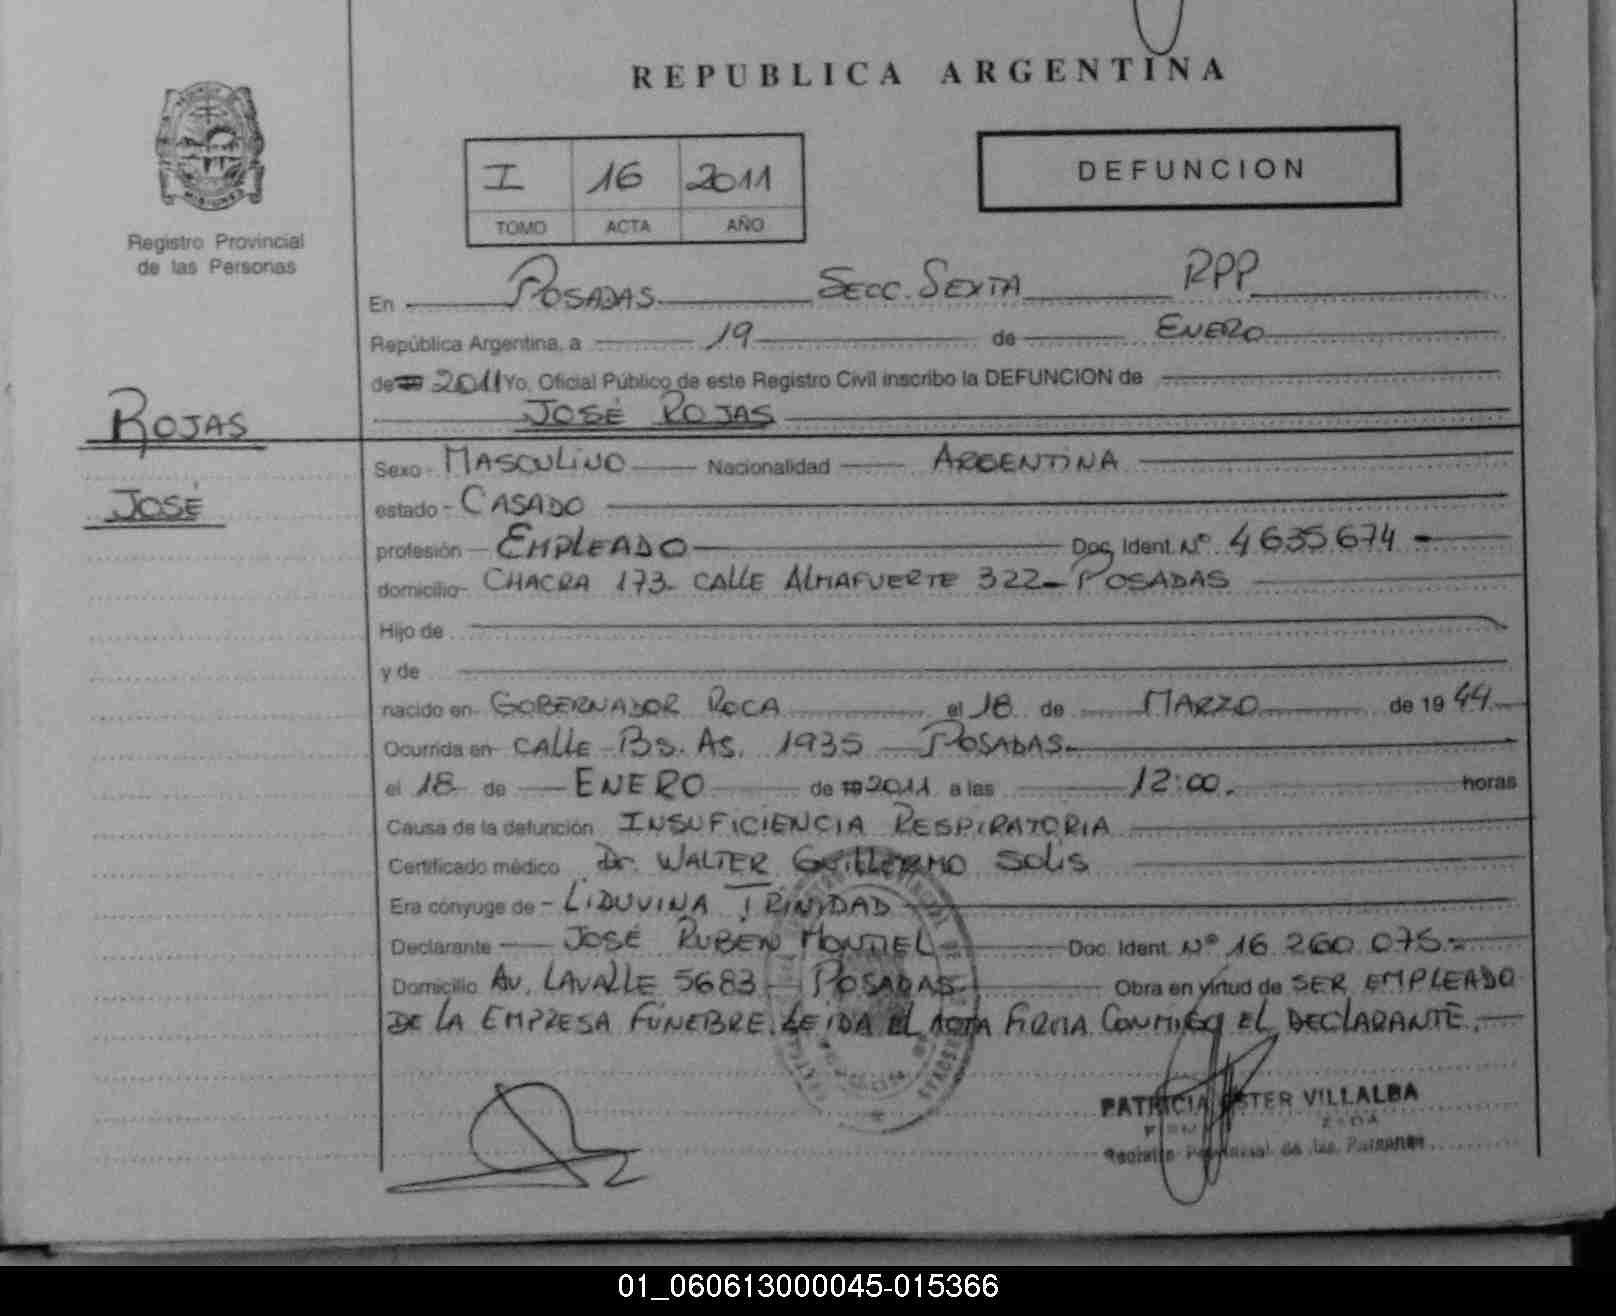 REPUBLICA ARGENTINA
I 16 2011
TOMO ACTA AÑO
DEFUNCION
Registro Provincial
de las Personas
En POSADAS SECC. SEXTA RPP
República Argentina, a 19 de ENERO
de 2011 Yo, Oficial Público de este Registro Civil inscribo la DEFUNCION de
JOSÉ ROJAS
ROJAS
JOSÉ
Sexo MASCULINO Nacionalidad ARGENTINA
estado CASADO
profesión EMPLEADO Doc. Ident. Nº 4635674
domicilio CHACRA 173 - CALLE ALMAFUERTE 322 - POSADAS
Hijo de
y de
nacido en GOBERNADOR ROCA el 18 de MARZO de 1944
Ocurrida en CALLE BS. AS. 1935 POSADAS
el 18 de ENERO de 2011 a las 12:00. horas
Causa de la defunción INSUFICIENCIA RESPIRATORIA
Certificado médico Dr. WALTER GUILLERMO SOLIS
Era cónyuge de LIDUVINA TRINIDAD
Declarante JOSÉ RUBEN MONTIEL Doc. Ident. Nº 16.260.075
Domicilio AV. LAVALLE 5683 - POSADAS Obra en virtud de SER EMPLEADO
DE LA EMPRESA FUNEBRE. LEIDA EL ACTA FIRMA CONMIGO EL DECLARANTE.
PATRICIA ESTER VILLALBA
Registro Provincial de las Personas
01_060613000045-015366